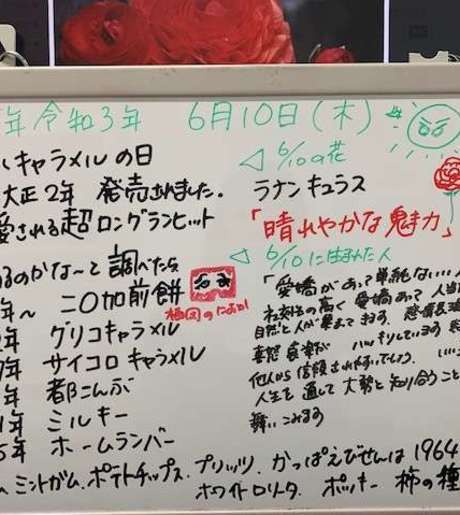 年 令和3年 6月10日(木)
キャラメルの日
大正2年 発売されました。
愛される超ロングランヒット
るのかな〜と調べたら
年〜 二〇加煎餅
年 グリコキャラメル
年 サイコロキャラメル
年 都こんぶ
1年 ミルキー
5年 ホームランバー
ミントガム、ポテトチップス、プリッツ、かっぱえびせんは1964
ホワイトロリータ、ポッキー 柿の種
6/10の花
ラナンキュラス
「晴れやかな魅力」
6/10に生まれた人
「愛嬌があって単純ない
の高く愛嬌あって
自然と人が集まってきます。
喜怒哀楽が ハッキリしています
他人から信頼されやすいでしょう。
人生を通して大勢と知り合うこと
舞いこみます